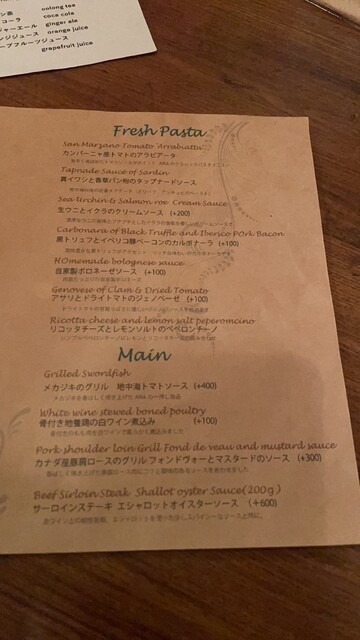 oolong tea
コーラ coca cola
ジャーエール ginger ale
ジジュース orange juice
ープフルーツジュース
grapefruit juice
Fresh Pasta
San Marzano Tomato 'Arrabiatta'
カンパーニャ産トマトのアラビアータ
Tapnade Sauce of Sardin
真イワシと香草パン粉のタップナードソース
Sea Urchin & Salmon roe Cream Sauce
生ウニとイクラのクリームソース (+200)
Carbonara of Black Truffle and Iberico POrk Bacon
黒トリュフとイベリコ豚ベーコンのカルボナーラ (+100)
HOmemade bolognese sauce
自家製ボロネーゼソース (+100)
Genovese of Clam & Dried Tomato
アサリとドライトマトのジェノベーゼ (+100)
Ricotta cheese and lemon salt peperomcino
リコッタチーズとレモンソルトのペペロンチーノ
Main
Grilled Swordfish
メカジキのグリル 地中海トマトソース (+400)
White wine stewed boned poultry
骨付き地養鶏の白ワイン煮込み (+100)
Pork shoulder loin Grill Fond de veau and mustard sauce
カナダ産豚肩ロースのグリル フォンドヴォーとマスタードのソース (+300)
Beef Sirloin Steak Shallot oyster Sauce(200g)
サーロインステーキ エシャロットオイスターソース (+600)